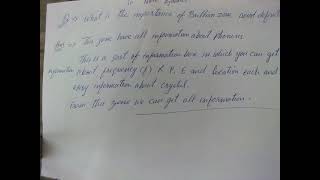 Q: → What is the importance of Brillion zone and definit
Ans: → This zone have all information about phonon.
This is a sort of information box in which you can get
information about frequency (f) K, P, E and location each and
every information about crystal.
from this zone we can get all information.